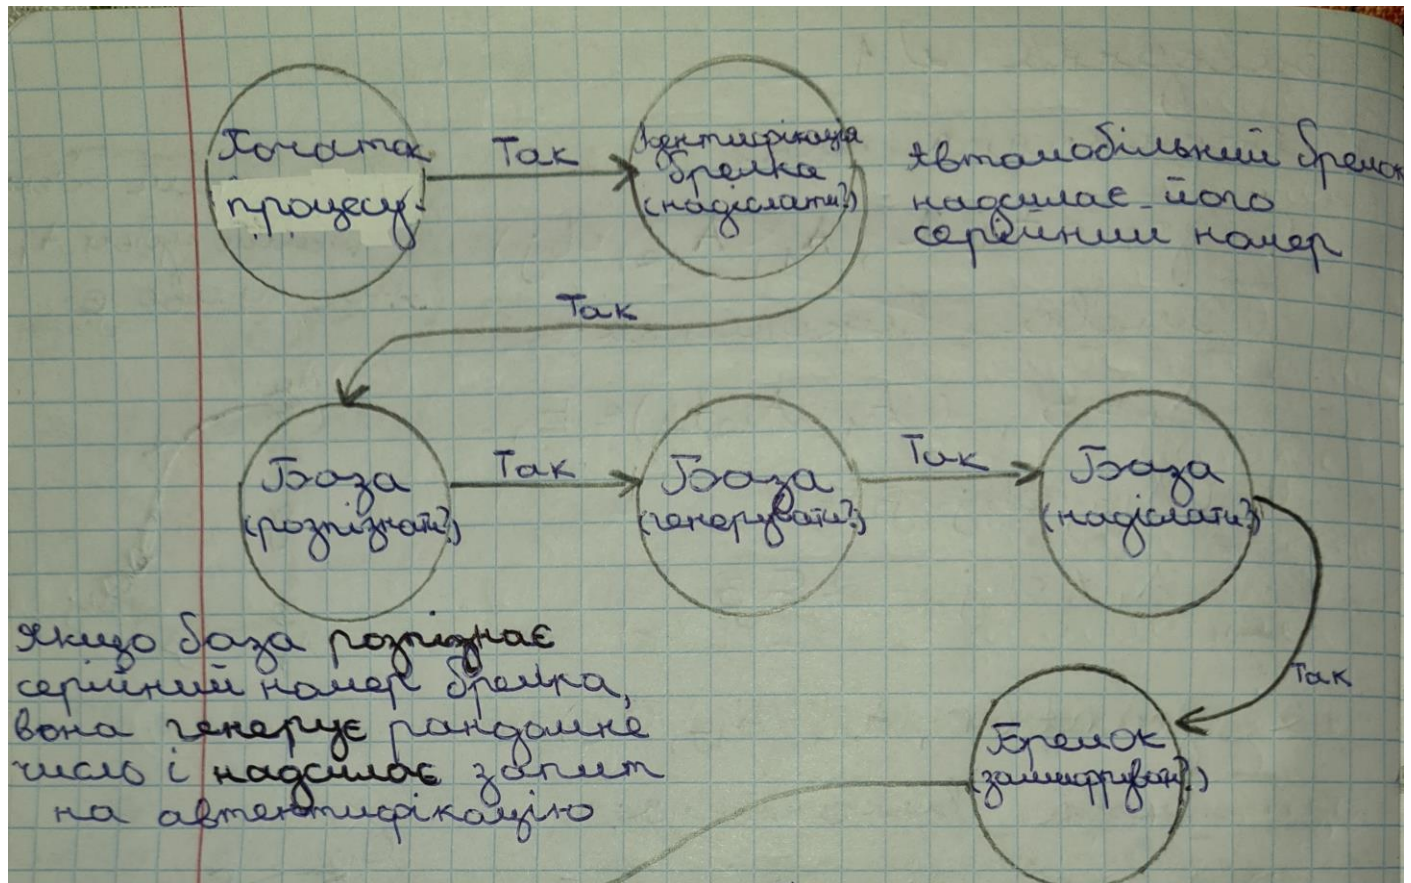 Початок
процесу
Так
Ідентифікація
брелка
(надіслати?)
Автомобільний брелок
надсилає його
серійний номер
Так
База
(розпізнати?)
Так
База
(генерувати?)
Так
База
(надіслати?)
Так
Якщо база розпізнає
серійний номер брелка,
вона генерує рандомне
число і надсилає запит
на автентифікацію
Брелок
(зашифрувати?)